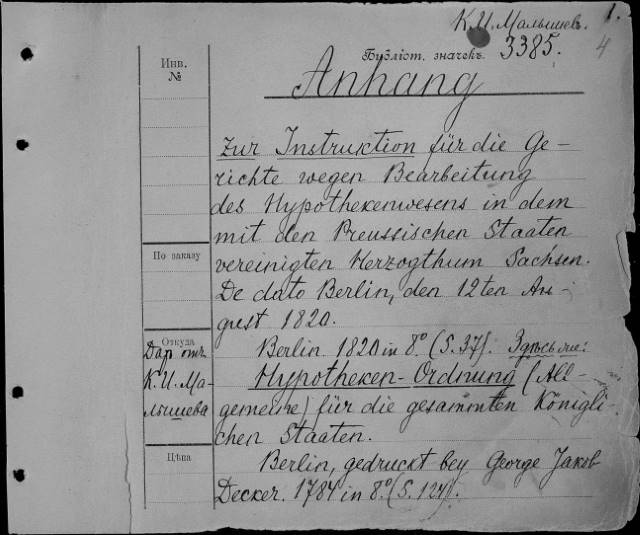 К. И. Малышевъ. 1.
4
Библіот. значекъ. 3385.
Инв.
№
Anhang
zur Instruktion für die Ge-
richte wegen Bearbeitung
des Hypothekenwesens in dem
mit den Preussischen Staaten
По заказу
vereinigten Herzogthum Sachsen.
De dato Berlin, den 12ten Au-
gust 1820.
Откуда
Даръ отъ
К. И. Ма-
лышева
Berlin 1820 in 8º. (S. 37). Здѣсь же:
Hypotheken-Ordnung (All-
gemeine) für die gesammten Königli-
chen Staaten.
Цѣна
Berlin, gedruckt bey George Jakob
Decker. 1784 in 8º (S. 124).